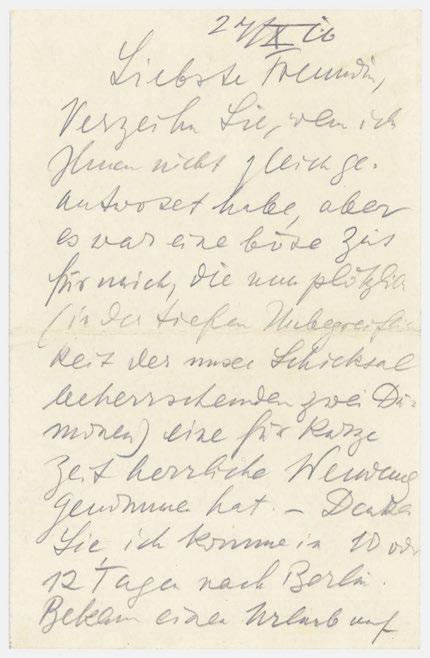 27/X 16
Liebste Freundin,
Verzeihn Sie, wenn ich
Ihnen nicht gleich ge-
antwortet habe, aber
es war eine böse Zeit
für mich, die nun plötzlich
(in der tiefen Unbegreiflich
keit der unser Schicksal
beherrschenden zwei Dä-
monen) eine für kurze
Zeit herrliche Wendung
genommen hat. – Denken
Sie, ich komme in 10 oder
12 Tagen nach Berlin.
Bekam einen Urlaub auf